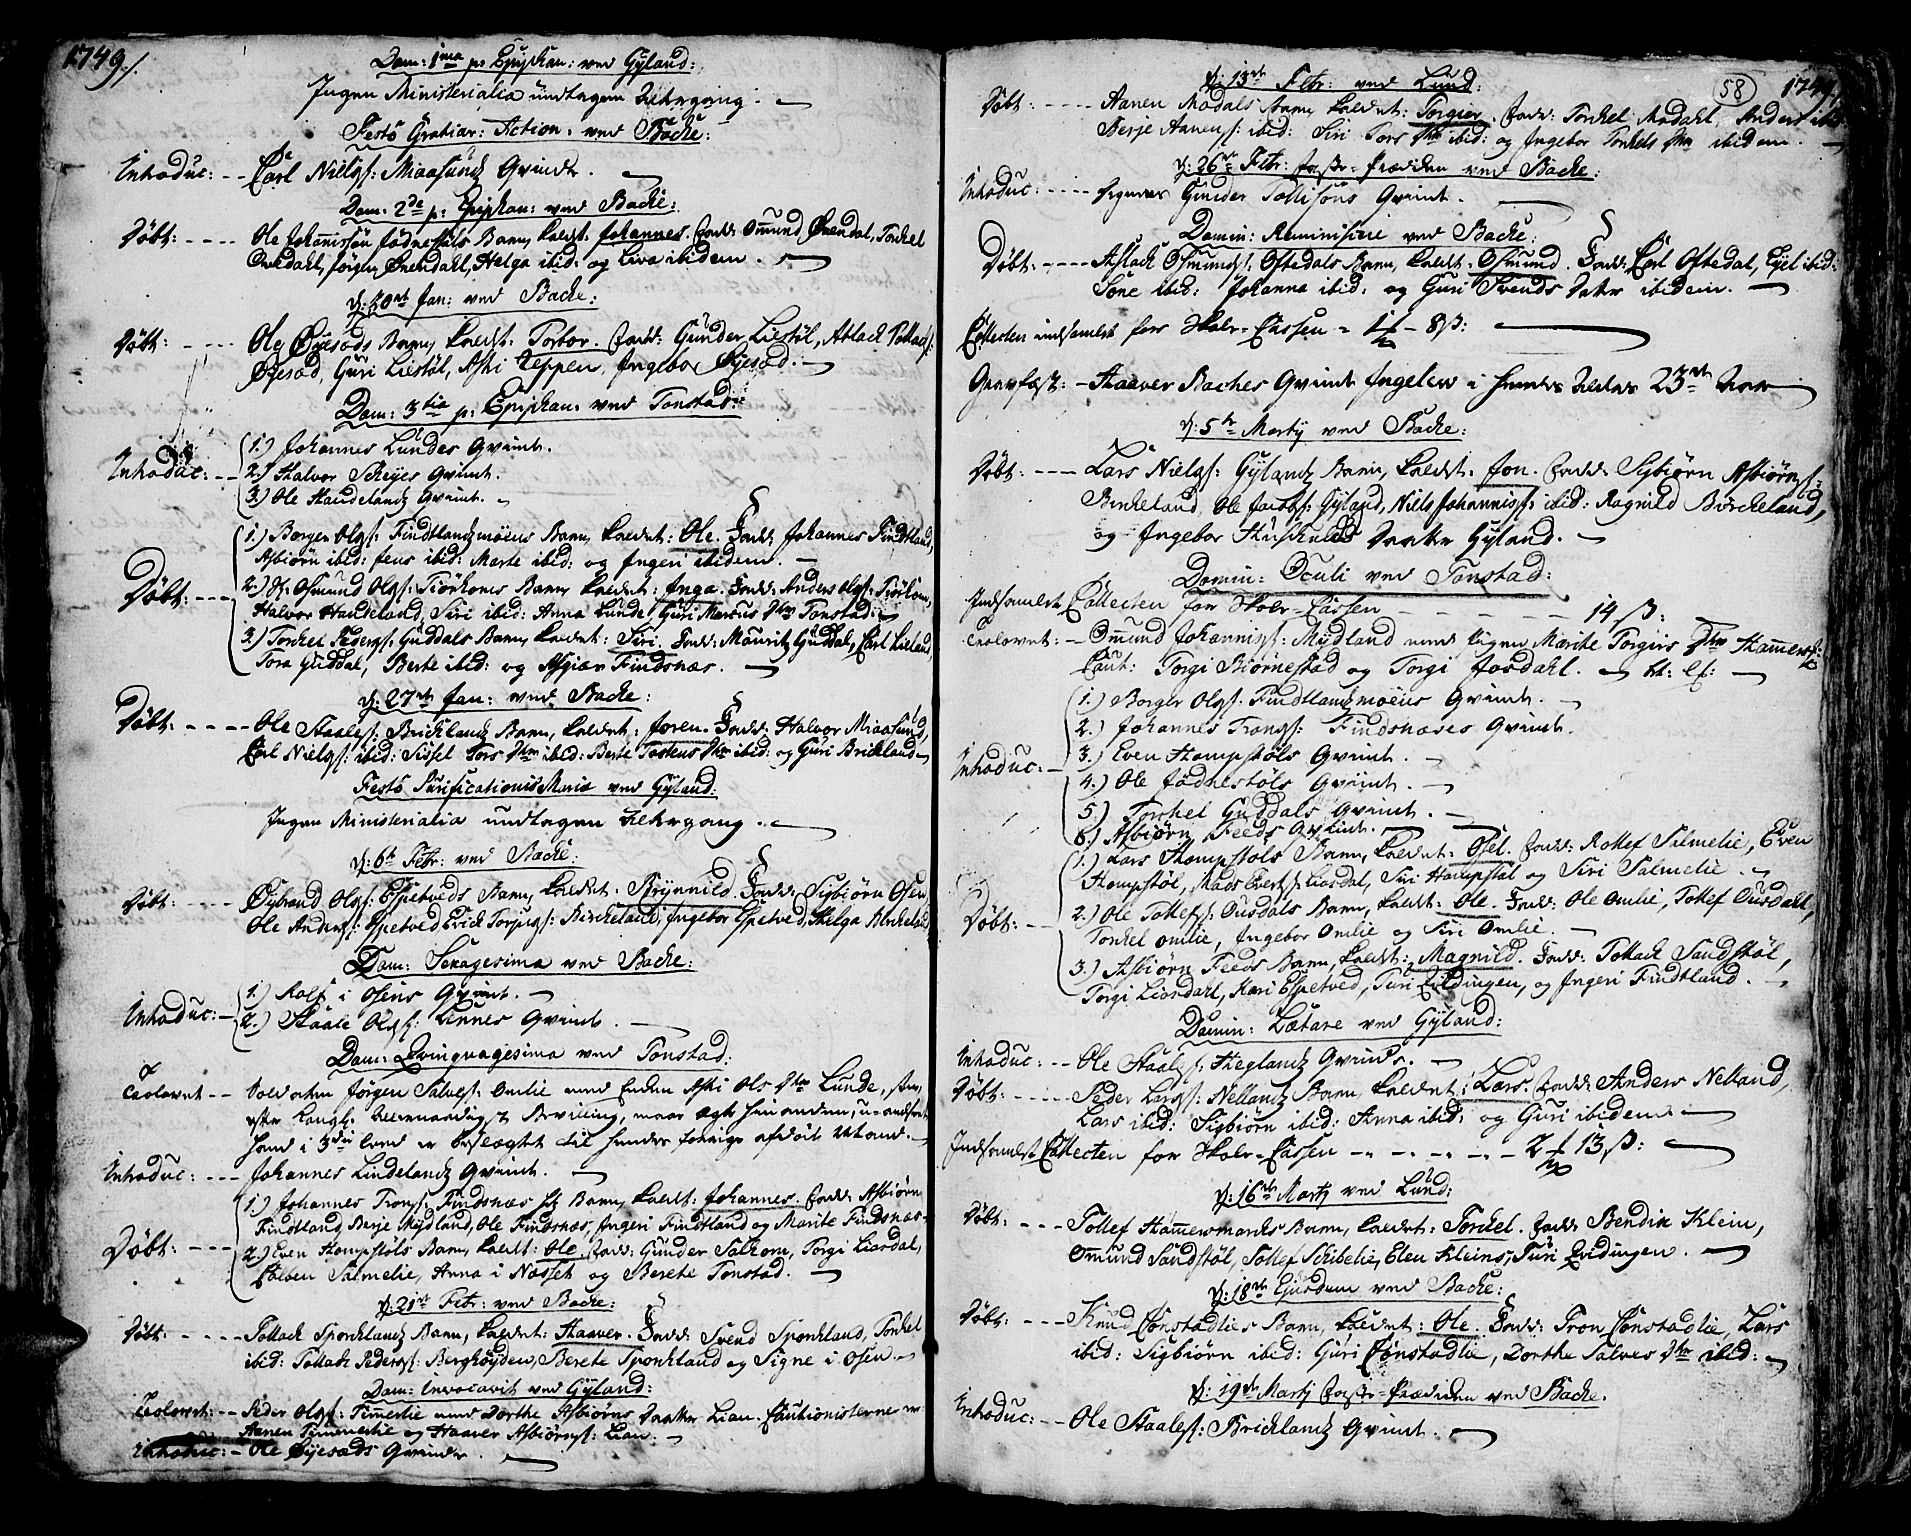 1749./.
Dom: 1ma p: Epiphan: ved Gyland:
Ingen Ministerialia undtagen Altergang.
Festo Gratiar: Action: ved Backe:
Introduc: -- Carl Nielss: Miaasundz Qvinde.
Dom: 2de p: Epiphan: ved Backe:
Døbt: ---- Ole Johanissøn Jødnestøls Barn, kaldet: Johannes. Fadd: Omund Ovedal, Torkel
Ovedahl, Jørgen Ovedahl, Helga ibid: og Liva ibidem.
d: 20de Jan: ved Backe:
Døbt: ---- Ole Øyesads Barn, kaldet: Torbor. Fadd: Gunder Liestøl, Atlack Tollacs:
Øyesad, Guri Liestøl, Aski Eppen, Ingebor Øyesad.
Dom: 3tia p: Epiphan: ved Tonstad:
Introduc: -- 1.) Johannes Lundes Qvinde.
2.) Halvor Skeyes Qvinde.
3.) Ole Haudelandz Qvinde.
1.) Borger Olss: Findtlandzmoens Barn, kaldet: Ole. Fadd: Johannes Findtland,
Asbiørn ibid: Jens ibid: Marte ibid: og Ingeri ibidem.
Døbt: --- 2.) Osmund Olss: Tiørhoms Barn kaldet: Inga. Fadd: Anders Olss: Tiørhom,
Halvor Haukeland, Siri ibid: Anna Lunde, Guri Marcus Dtr Tonstad:
3.) Torkel Peders: Guddals Barn, kaldet: Siri. Fadd: Mauritz Guddal, Carl Lieland,
Tora Guddal, Berte ibid: og Asgiær Findsnæs.
d: 27de Jan: ved Backe:
Døbt: ---- Ole Staales: Bricklandz Barn, kaldet: Joren. Fadd: Halvor Miaasund,
Carl Nielss: ibid: Sissel Tors Dtr ibid: Berte Tostens Dtr ibid: og Guri Brickland
Festo Purificationis Mariæ ved Gyland:
Ingen Ministerialia undtagen Altergang.
d: 6te Febr: ved Backe:
Døbt: ---- Øybrand Olss: Espetveds Barn, kaldet: Brynnild. Fadd: Sigbiørn Osen,
Ole Anders: Espetved, Erick Torgiss: Birckeland, Ingebor Espetved, Helga Birckeland
Dom: Sexagesima ved Backe:
Introduc: - 1.) Rolf i Osens Qvinde.
2.) Staale Olss: Lennes Qvinde.
Dom: Qvinquagesima ved Tonstad:
Trolovet -- Soldaten Jørgen Salves: Omlie med Enken Aski Ols Dtr Lunde, som,
efter Kongl: Allernaadigste Bevilling, maae egte hinanden, u-andseet
hand i 3die leed er beslegtet til hendes forrige afdøde Mand.
Introduc: --- Johannes Lindelandz Qvinde.
1.) Johannes Trons: Findsnæses Barn, kaldet: Johannes. Fadd: Asbiørn
Findtland, Berje Mydland, Ole Findsnæs, Ingeri Findtland og Marite Findsnæs
Døbt: --- 2.) Even Hompstøls Barn, kaldet: Ole. Fadd: Gunder Salkom, Torgi Liosdal,
Colben Salmelie, Anna i Næsset og Berete Tonstad.
d: 21de Febr: ved Backe:
Døbt: ----- Tollack Sporklandz Barn, kaldet: Haaver. Fadd: Svend Sporkland, Torkel
ibid: Tollack Peders: Berghøyden, Berete Sporkland og Signe i Osen.
Dom: Invocavit ved Gyland:
Trolovet: -- Peder Olss: Timerlie med Dorthe Asbiørns Daatter Lian. Cautionisterne er
Aanen Timmerlie og Haaver Asbiørns: Lian.
Introduc: - Ole Øyesads Qvinde.
58
1749./.
d: 13de Febr: ved Lund:
Døbt: ---- Aanen Modals Barn, kaldet: Torgier. Fadd: Torckel Modahl, Anders ibid:
Berje Aanens: ibid: Siri Tors Dtr ibid: og Ingebor Torkels Dtr ibidem.
d: 26de Febr: Faste-Prædiken ved Backe:
Introduc: ---- Gunder Tollissøns Qvinde.
Domin: Reminiscere ved Backe:
Døbt: ---- Aslack Osmunds: Oftedals Barn, kaldet: Osmund. Fadd: Carl Oftedal, Eyel ibid:
Tone ibid: Johanna ibid: og Guri Svends Dater ibidem.
Collecten indsamlet for Skole-Cassen = 1 - 8 ß:
Gravfæst: - Haaver Backes Qvinde Ingelev i hendes Alders 23de Aar
d: 5te Martij ved Backe:
Døbt: ---- Lars Nielss: Gylandz Barn, kaldet: Jon. Fadd: Sigbiørn Asbiørns:
Birkeland, Ole Jacobs: Gyland, Niels Johanniss: ibid: Ragnild Birckeland,
og Ingebor Daater Gyland.
Domin: Oculi ved Tonstad:
Indsamlet Collecten for Skole-Cassen - - - - 14 ß:
Trolovet: - Omund Johannis: Mydland med Pigen Marite Torgirs Dtr Hamers:
Caut: Torgi Biørnestad og Torgi Josdahl.
1.) Borger Olss: Findtlandzmoens Qvinde.
2.) Johannes Trons: Findsnæses Qvinde.
Introduc: - 3.) Even Hompstøls Qvinde.
4.) Ole Jødnestøls Qvinde.
5.) Torckel Guddals Qvinde.
6.) Asbiørn Feeds Qvinde.
1.) Lars Hompstøls Barn, kaldet: Osel. Fadd: Rollef Salmelie, Even
Hompstøl, Mads Everts: Liosdal, Siri Hompstøl og Siri Salmelie.
Døbt: -- 2.) Ole Tollefs: Ousdals Barn, kaldet: Ole. Fadd: Ole Omlie, Tollef Ousdahl,
Torckel Omlie, Ingebor Omlie og Siri Omlie.
3.) Asbiørn Feeds Barn, kaldet: Magnild. Fadd: Tollack Sandstøl,
Torgi Liosdahl, Kari Espetved, Turi Qvidingen, og Ingeri Findtland.
Domin: Lætare ved Gyland:
Introduc: -- Ole Staales: Heglandz Qvinde.
Døbt: ---- Peder Larss: Nellandz Barn, kaldet: Lars. Fadd: Anders Nelland,
Lars ibid: Sigbiørn ibid: Anna ibid: og Guri ibidem.
Indsamlet Collecten for Skole-Cassen - - - - - 2 13 ß:
d: 16de Martij ved Lund:
Døbt: --- Tollef Hamersmarks Barn, kaldet: Torckel. Fadd: Bendix Klein,
Omund Sandstøl, Tollef Schibelie, Elen Kleins, Turi Qvidingen.
d: 18de Ejusdem ved Backe:
Døbt: --- Knud Constadlies Barn, kaldet: Ole. Fadd: Tron Constadlie, Lars
ibid: Sigbiørn ibid: Guri Constadlie, Dorthe Salves Dtr ibid:
d: 19de Martij Faste-Prædiken ved Backe.
Introduc: -- Ole Staales: Bricklandz Qvinde.